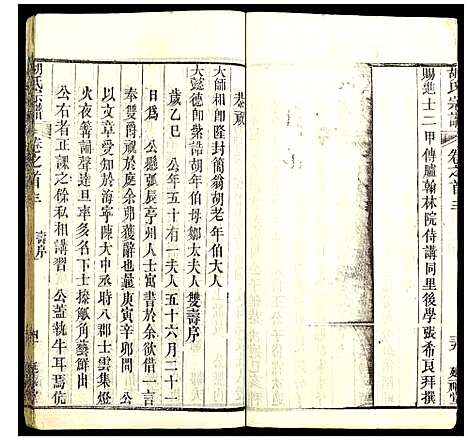 胡氏宗譜 卷之首三
賜進士二甲傳臚翰林院侍講同里後學張希良拜撰
恭祝
大師相郎隆封簡翁胡老年伯大人
大懿德郎榮誥胡年伯母鄒太夫人雙壽序
歲乙巳 公年五十有一夫人五十六月二十一
日為 公縣弧辰亭州人士寓書於余欲借一言
奉雙爵觴於庭余弗獲辭也曩庚寅辛卯間
以文章受知於海寧陳大中丞時八郡士雲集燈
火夜篝誦聲達旦率多名下士操觚角藝鮮出
公右者正課之餘私相講習 公蓋執牛耳焉伉
胡氏宗譜 卷之首三 壽序